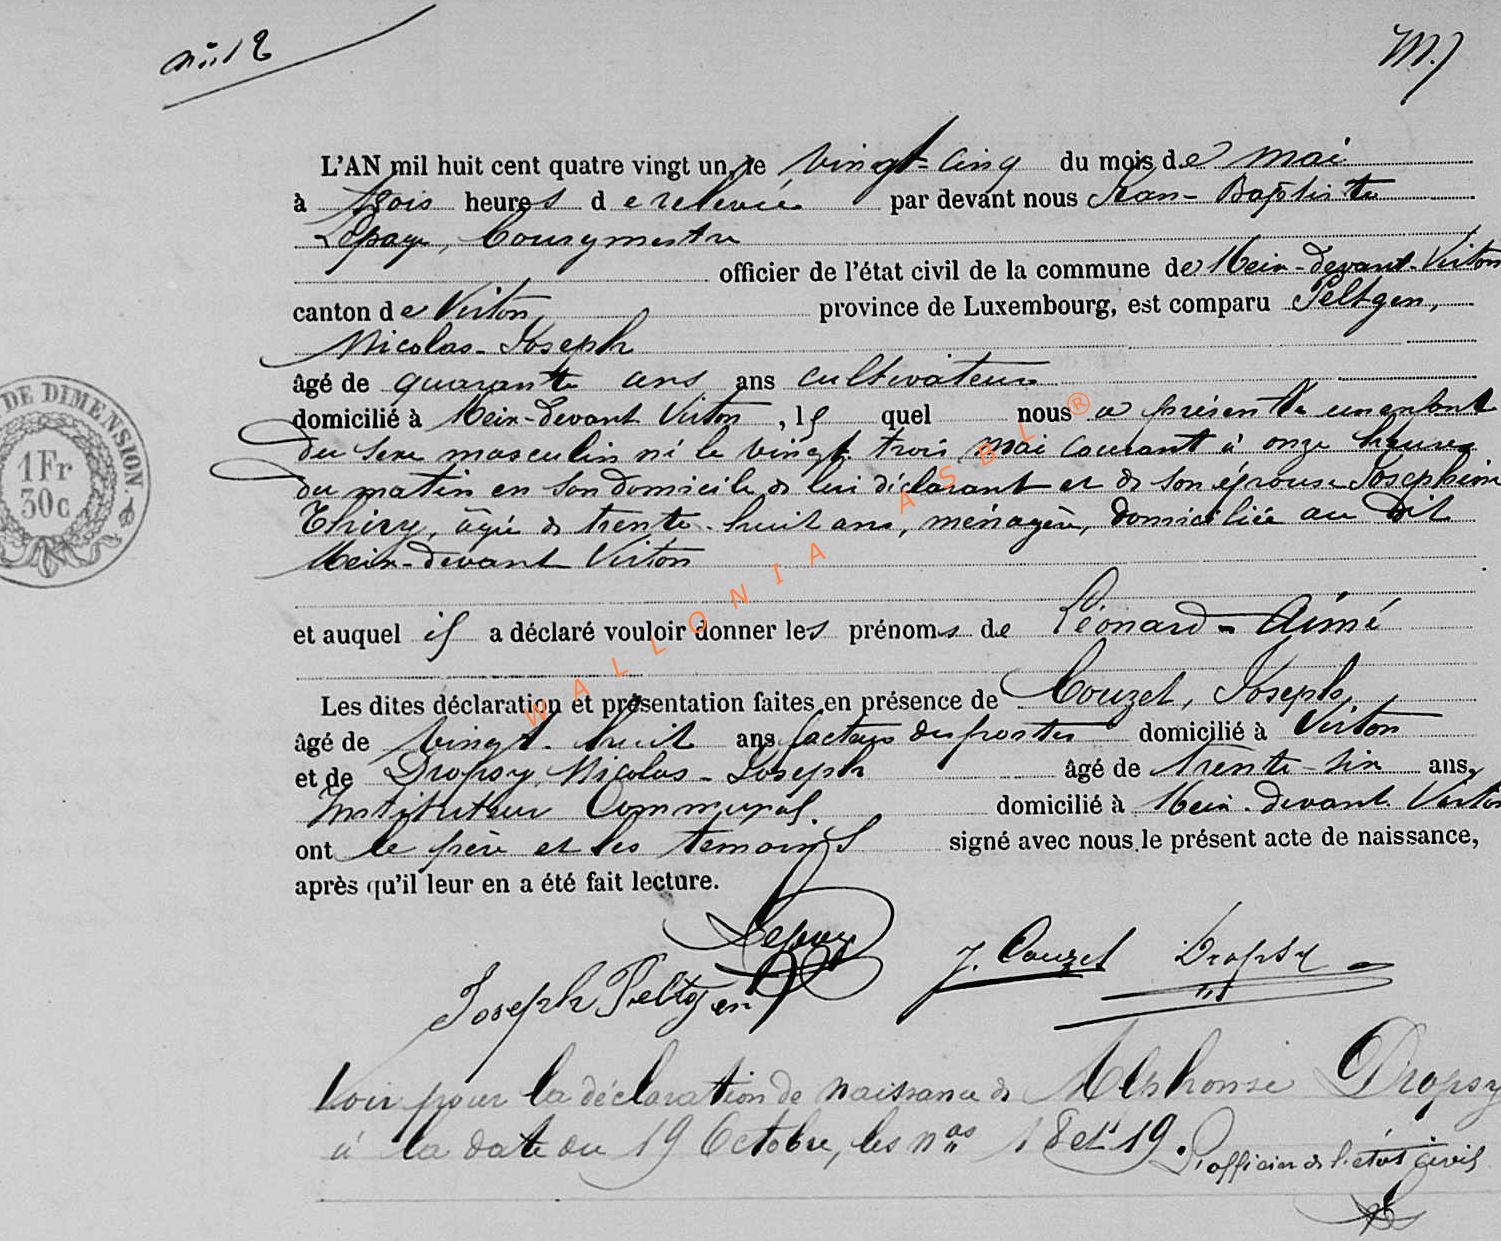 n° 12
M.)
L'AN mil huit cent quatre vingt un, le vingt-cinq du mois de mai
à trois heures de relevée par devant nous Jean-Baptiste
Lepage, Bourgmestre
officier de l'état civil de la commune de Meix-devant-Virton
canton de Virton, province de Luxembourg, est comparu Peltgen,
Nicolas-Joseph
âgé de quarante ans ans cultivateur
domicilié à Meix-devant Virton, lequel nous a présenté un enfant
du sexe masculin né le vingt trois mai courant à onze heures
du matin en son domicile de lui déclarant et de son épouse Joséphine
Thiry, âgée de trente-huit ans, ménagère, domiciliée au dit
Meix-devant Virton
et auquel il a déclaré vouloir donner les prénoms de Léonard-Aimé
Les dites déclaration et présentation faites en présence de Couzet, Joseph,
âgé de vingt-huit ans facteur des postes domicilié à Virton
et de Dropsy Nicolas-Joseph âgé de trente-six ans,
Instituteur Communal. domicilié à Meix-devant Virton
ont le père et les témoins signé avec nous le présent acte de naissance,
après qu'il leur en a été fait lecture.
Lepage J. Couzet Dropsy
Joseph Peltgen
Voir pour la déclaration de naissance de Alphonse Dropsy
à la date du 19 Octobre, les nos 18 et 19.
L'officier de l'état civil
DE DIMENSION.
1Fr
30c
WALLONIA ASBL®